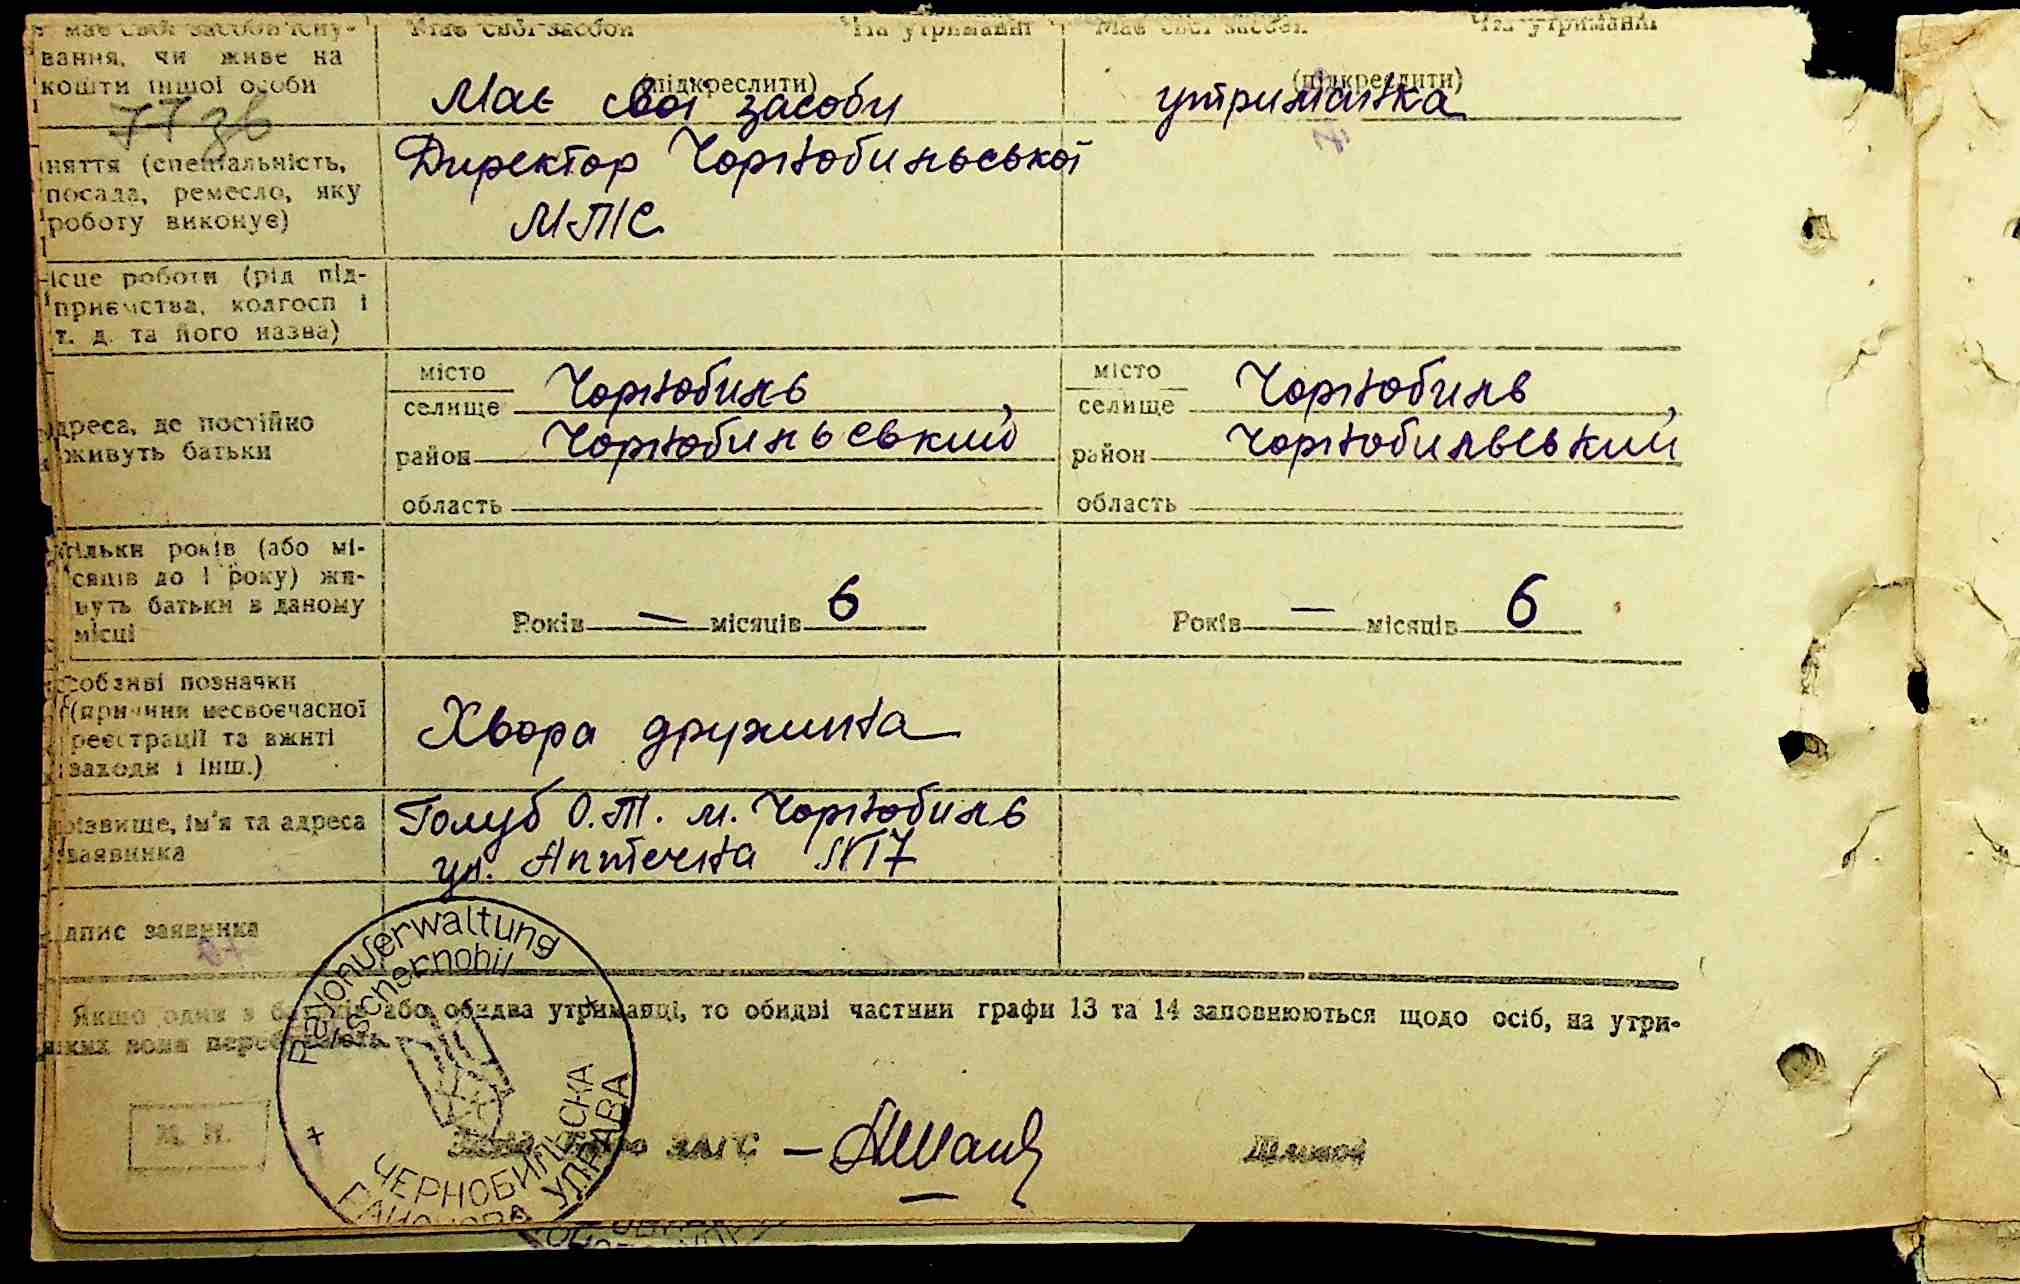 має свої засоби існу- Має свої засоби На утриманні Має свої засоби На утриманні
вання, чи живе на
кошти іншої особи (підкреслити) (підкреслити)
Має свої засоби утриманка
няття (спеціальність, Директор Чорнобильської
посада, ремесло, яку
роботу виконує) МТС
ісце роботи (рід під-
приємства, колгосп і
т. д. та його назва)
місто Чорнобиль місто Чорнобиль
селище , селище ,
дреса, де постійно
живуть батьки район Чорнобильський район Чорнобильський
область область
ільки років (або мі-
сяців до 1 року) жи-
вуть батьки в даному Років — місяців 6 Років — місяців 6
місці
собливі позначки
(причини несвоєчасної Хвора дружина
реєстрації та вжиті
заходи і інш.)
різвище, ім'я та адреса Голуб О.Т. м. Чорнобиль
заявника ул. Аптечна №17
дпис заявника
Rayonverwaltung
Tschernobil
Якщо один з батьків або обидва утриманці, то обидві частини графи 13 та 14 заповнюються щодо осіб, на утри-
яких вони перебувають.
М. П. ЗАГС —
ЧЕРНОБИЛЬСКА
РАЙОНОВА УПРАВА